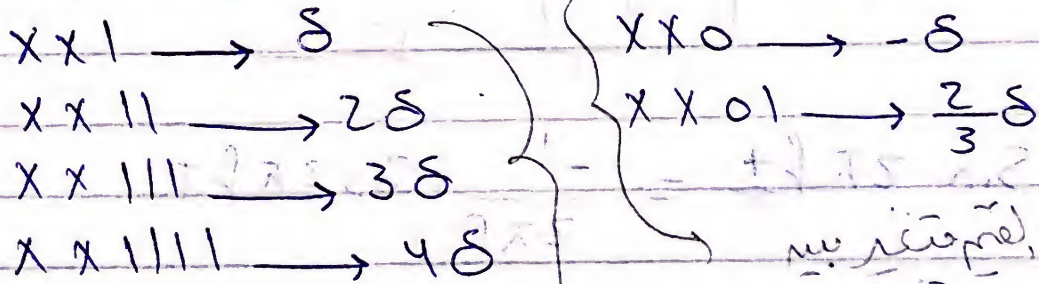 X X 1 ⟶ δ
X X 11 ⟶ 2δ
X X 111 ⟶ 3δ
X X 1111 ⟶ 4δ
X X 0 ⟶ -δ
X X 01 ⟶ 2/3 δ